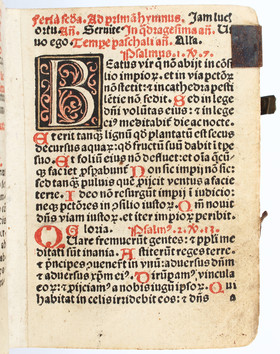 Feria scḋa. Ad primā hymnus. Jam luc
orto añ. Servite. In q̄dragesima añ. Vi
vo ego. Tempe paschali añ. Alla.
Psalmus. 1. X. 7.
BEatus vir q̄ nō abijt in cōsi
lio impior̄. et in via pctōr̄
nō stetit: et in cathedra pesti
lētie nō sedit. Sed in lege
dñi volūtas eius: et in le=
ge ei⁹ meditabit̄ die ac nocte.
Et erit tanq̄ lignū qd̄ plantatū est secus
decursus aquar̄: qd̄ fructū suū dabit i tpe
suo. Et foliū eius nō defluet: et oīa q̄cū
q̄ faciet p̄spabunt̄. Non sic impij nō sic:
sed tanq̄ puluis quē p̄ijcit ventus a facie
terre. Ideo nō resurgūt impij i iudicio:
neq̄ pctōres in p̄silio iustor̄. Qm̄ nouit
dñs viam iustor̄. et iter impior̄ peribit.
Gloria. Psalm⁹. 2. X. 13.
QUare fremuerūt gentes: et ppl̄i me
ditati sunt inania. Astiterūt reges terre
et p̄ncipes ↄuenerūt in vnū: aduersus dñm
et aduersus xpm̄ ei⁹. Dirūpam⁹ vincula
eor̄: et p̄ijciam⁹ a nobis iugū ipsor̄. Qui
habitat in celis irridebit eos: et dñs